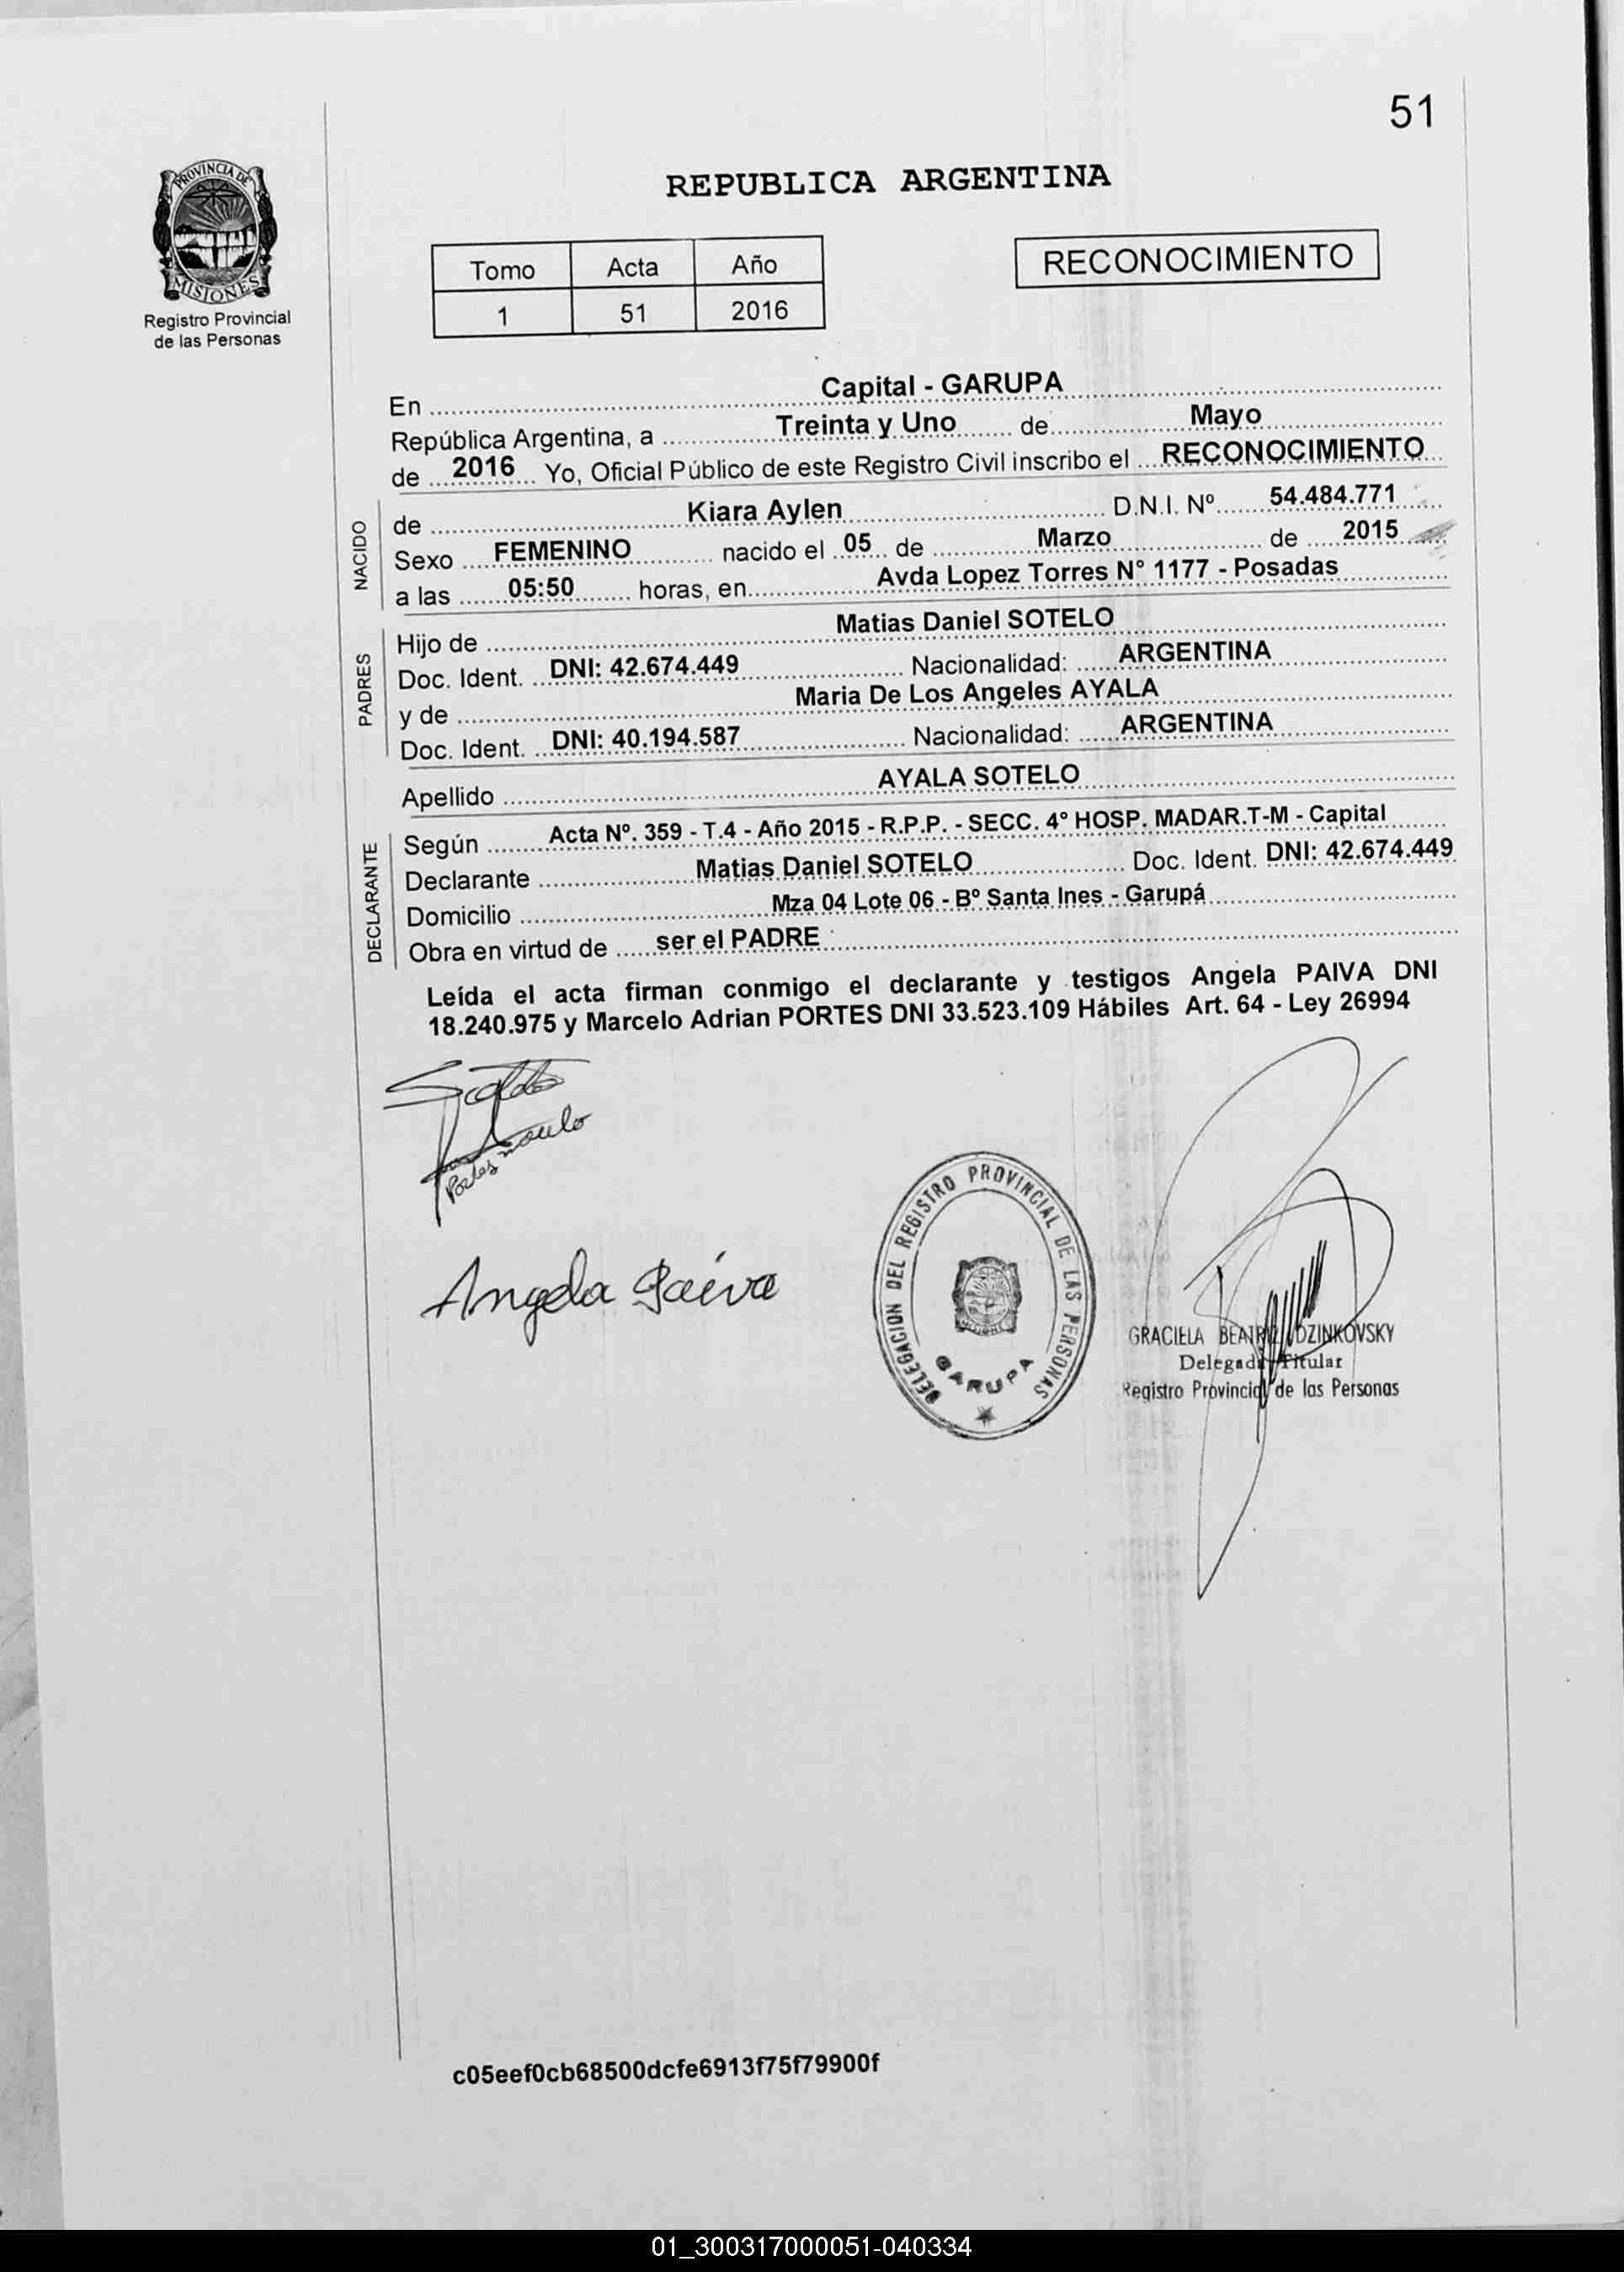 51
PROVINCIA DE
MISIONES
Registro Provincial
de las Personas
REPUBLICA ARGENTINA
Tomo Acta Año
1 51 2016
RECONOCIMIENTO
En Capital - GARUPA
República Argentina, a Treinta y Uno de Mayo
de 2016 Yo, Oficial Público de este Registro Civil inscribo el RECONOCIMIENTO
NACIDO
de Kiara Aylen D.N.I. Nº 54.484.771
Sexo FEMENINO nacido el 05 de Marzo de 2015
a las 05:50 horas, en Avda Lopez Torres N° 1177 - Posadas
PADRES
Hijo de Matias Daniel SOTELO
Doc. Ident. DNI: 42.674.449 Nacionalidad: ARGENTINA
y de Maria De Los Angeles AYALA
Doc. Ident. DNI: 40.194.587 Nacionalidad: ARGENTINA
Apellido AYALA SOTELO
DECLARANTE
Según Acta Nº. 359 - T.4 - Año 2015 - R.P.P. - SECC. 4° HOSP. MADAR.T-M - Capital
Declarante Matias Daniel SOTELO Doc. Ident. DNI: 42.674.449
Domicilio Mza 04 Lote 06 - Bº Santa Ines - Garupá
Obra en virtud de ser el PADRE
Leída el acta firman conmigo el declarante y testigos Angela PAIVA DNI
18.240.975 y Marcelo Adrian PORTES DNI 33.523.109 Hábiles Art. 64 - Ley 26994
Portes
Angela Paiva
DELEGACION DEL REGISTRO PROVINCIAL DE LAS PERSONAS
GARUPA
GRACIELA
Titular
Registro Provincial de las Personas
c05eef0cb68500dcfe6913f75f79900f
01_300317000051-040334